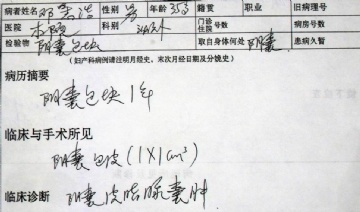 病者姓名 邓 浩 性别 男 年龄 35岁 籍贯 职业 旧病理号
医院 本院 科别 门诊住院 号数 号数
检验物 阴囊包块 取自身体何处 阴囊 患病久暂
(妇产科病例请注明月经史,末次月经日期及分娩史)
病历摘要
阴囊包块1年
临床与手术所见
阴囊包皮(1×1cm³)
临床诊断 阴囊皮脂腺囊肿